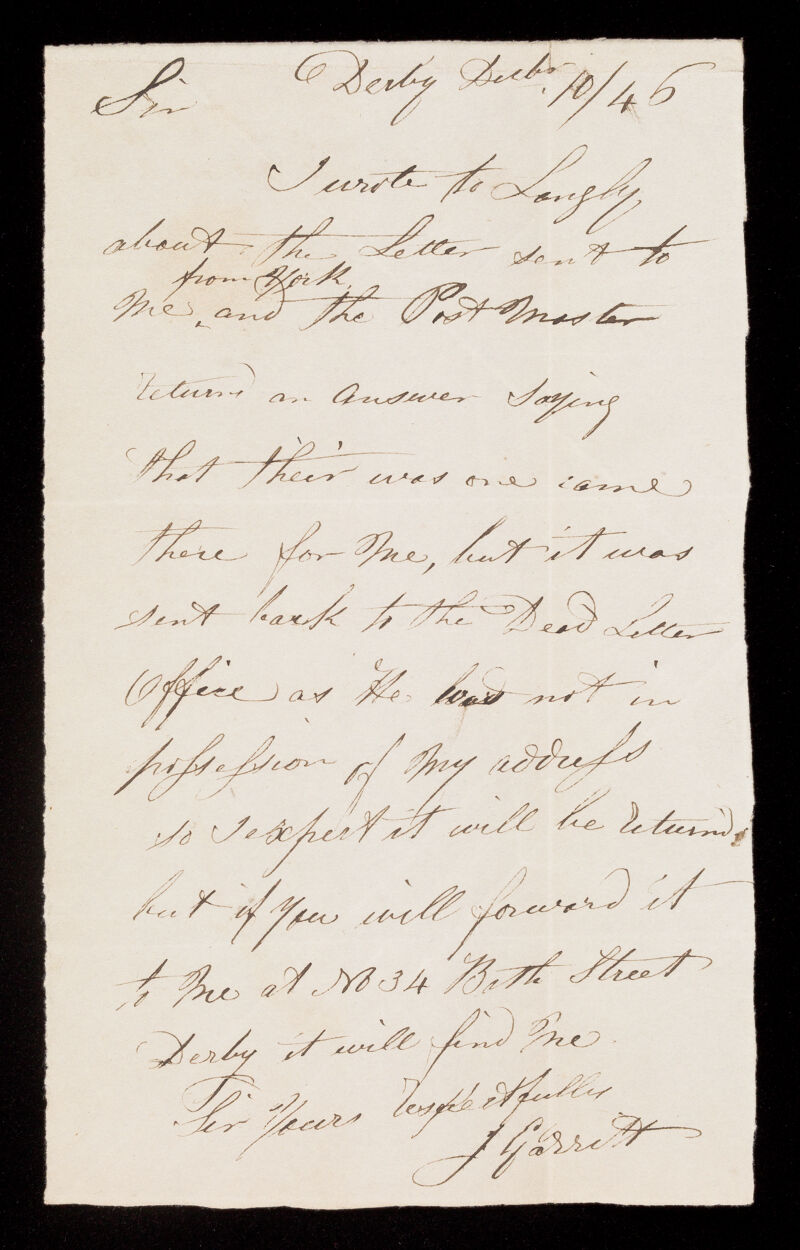 Derby Decbr 10/46
Sir
I wrote to Langly
about the Letter sent to
from York
Me ‸ and the Post Master
returnd an answer saying
that their was one came
there for Me, but it was
sent back to the Dead Letter
Office as He was not in
possession of My address
so I expect it will be returnd
but if you will forward it
to Me at No 34 Bath Street
Derby it will find Me
Sir Yours respectfully
J Garritt